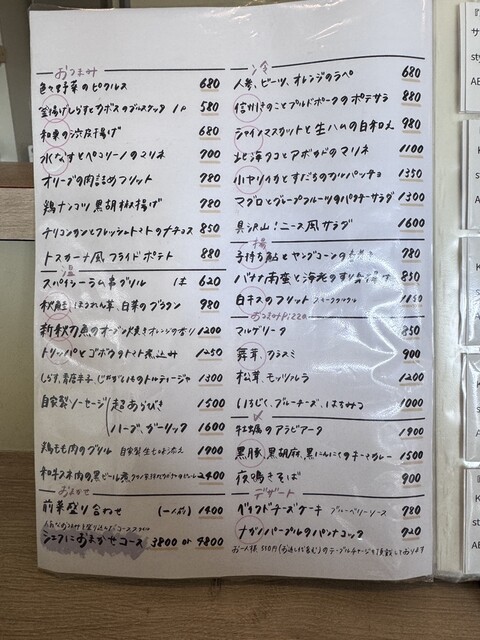 おつまみ
色々野菜のピクルス 680
釜揚げしらすと のブルスケッタ 1P 580
和栗の渋皮揚げ 680
水なすとペコリーノのマリネ 700
オリーブの肉詰めフリット 780
鶏ナンコツ黒胡椒揚げ 780
チリコンカンとフレッシュトマトのナチョス 850
トスカーナ風フライドポテト 880
温
スパイシーラム串グリル 1本 620
秋鮭、ほうれん草、白菜のグラタン 980
新秋刀魚のオーブン焼き オレンジの香り 1200
トリッパとゴボウのトマト煮込み 1250
しらす、青唐辛子、じゃがいものトルティージャ 1300
自家製ソーセージ 超あらびき 1500
ハーブ、ガーリック 1600
鶏もも肉のグリル 自家製 添え 1900
和牛スネ肉の黒ビール煮 2400
おまかせ
前菜盛り合わせ (一人前) 1400
シェフにおまかせコース 3800 or 4800
冷
人参、ビーツ、オレンジのラペ 680
信州きのことプルドポークのポテサラ 880
シャインマスカットと生ハムの白和え 980
北海タコとアボカドのマリネ 1100
小ヤリイカとすだちのカルパッチョ 1350
マグロとグレープフルーツのパクチーサラダ 1300
具沢山!ニース風サラダ 1600
揚
子持ち鮎とヤングコーンの 780
バナナ南蛮と海老のすり 850
白キスのフリット 1150
おつまみpizza
マルゲリータ 850
舞茸、カラスミ 900
松茸、モッツァレラ 1200
いちじく、ブルーチーズ、はちみつ 1000
〆
牡蠣のアラビアータ 1900
黒豚、黒胡麻、黒にんにくのキーマカレー 1500
夜鳴きそば 900
デザート
ベイクドチーズケーキ ブルーベリーソース 780
ナガノパープルのパンナコッタ 720
お一人様 550円(お通し代含む)のテーブルチャージを頂戴しております